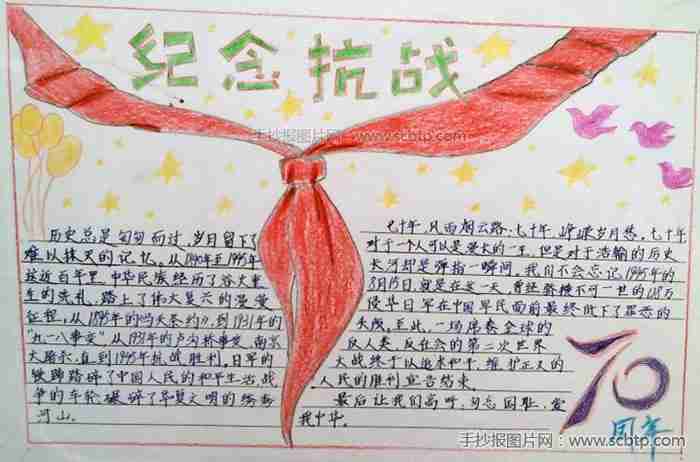 纪念抗战
手抄报图片网：www.scbtp.com
历史总是匆匆而过，岁月留下了
难以抹灭的记忆。从1840年至1945年
接近百年里，中华民族经历了
的洗礼，踏上了伟大复兴的漫漫
征程，从1895年的《马关条约》，到1931年的
“九一八事变”从1937年的卢沟桥事变，南京
大屠杀，直到1945年抗战胜利。日军的
铁蹄踏碎了中国人民的和平生活，战
争的车轮碾碎了华夏文明的锦绣
河山。
七十年，风雨烟云路，七十年，峥嵘岁月愁。七十年
对于一个人可以是漫长的一生，但是对于浩瀚的历史
长河却是弹指一瞬间。我们不会忘记1945年的
8月15日，就是在这一天，曾经骄横不可一世的128万
侵华日军在中国军民面前最终放下了罪恶的
至此，一场席卷全球的
反人类、反社会的第二次世界
大战终于以追求和平，维护正义的
人民的胜利宣告结束。
最后让我们高呼，勿忘国耻，爱
我中华。
70
周年
手抄报图片网：www.scbtp.com